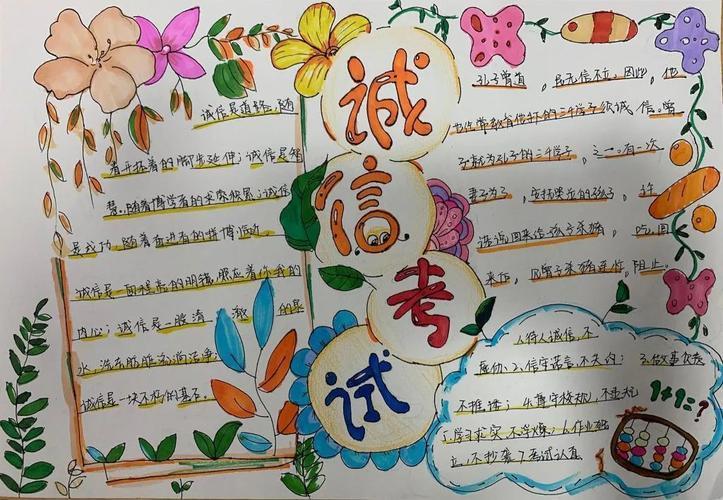 诚信考试
诚信是道路，随
着开拓者的脚步延伸；诚信是智
慧，随着博学者的求索积累；诚信
是成功，随着奋进者的拼搏临近
诚信是一面
的明镜，照应着你我的
内心；诚信是一股清 澈 的泉
水，洗去肮脏
诚信是一块不朽的基石
孔子曾道 ，民无信不立。因此，他
也常常教育他
的三千学子
诚 信。曾
子就为孔子的三千学子 之一。有一次
妻子为了
孩子， 许
诺说回来给孩子杀猪 吃，回
来后，
杀猪
阻止。
1.待人诚信，不
2.信守诺言，不失约； 3.做事负责
不推诿； 4.遵守校规，不违规
5.学习求实，不浮躁；6.作业独
立，不抄袭 7.考试认真
1+1=?